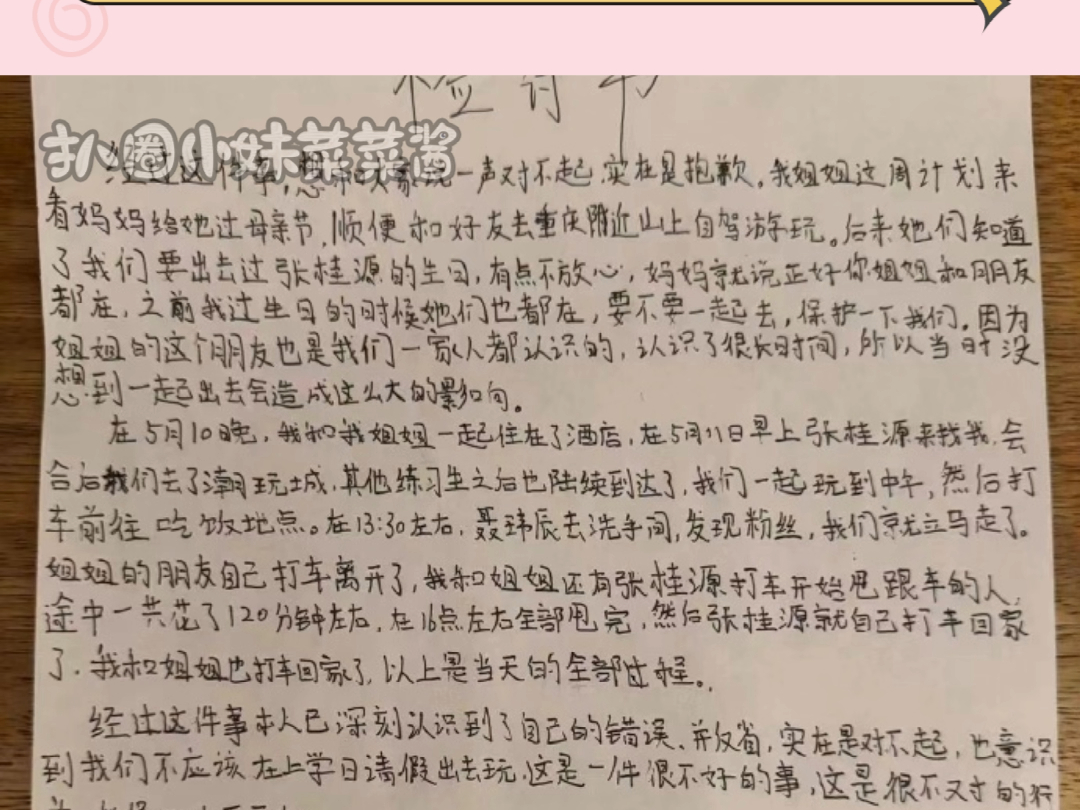 检讨书
扒圈小妹菜菜酱
经过这件事,想和大家说一声对不起.实在是抱歉。我姐姐这周计划来
看妈妈给她过母亲节,顺便和好友去重庆附近山上自驾游玩。后来她们知道
了我们要出去过张桂源的生日,有点不放心,妈妈就说正好你姐姐和朋友
都在,之前我过生日的时候她们也都在,要不要一起去,保护一下我们。因为
姐姐的这个朋友也是我们一家人都认识的,认识了很长时间,所以当时没
想到一起出去会造成这么大的影响。
在5月10晚,我和我姐姐一起住在了酒店,在5月11日早上张桂源来找我,会
合后我们去了潮玩城,其他练习生之后也陆续到达了,我们一起玩到中午,然后打
车前往吃饭地点。在13:30左右,聂玮辰去洗手间,发现粉丝,我们就立马走了。
姐姐的朋友自己打车离开了,我和姐姐还有张桂源打车开始甩跟车的人,
途中一共花了120分钟左右,在16点左右全部甩完,然后张桂源就自己打车回家
了.我和姐姐也打车回家了,以上是当天的全部过程。
经过这件事本人已深刻认识到了自己的错误、并反省,实在是对不起,也意识
到我们不应该在上学日请假出去玩,这是一件很不好的事,这是很不对的行